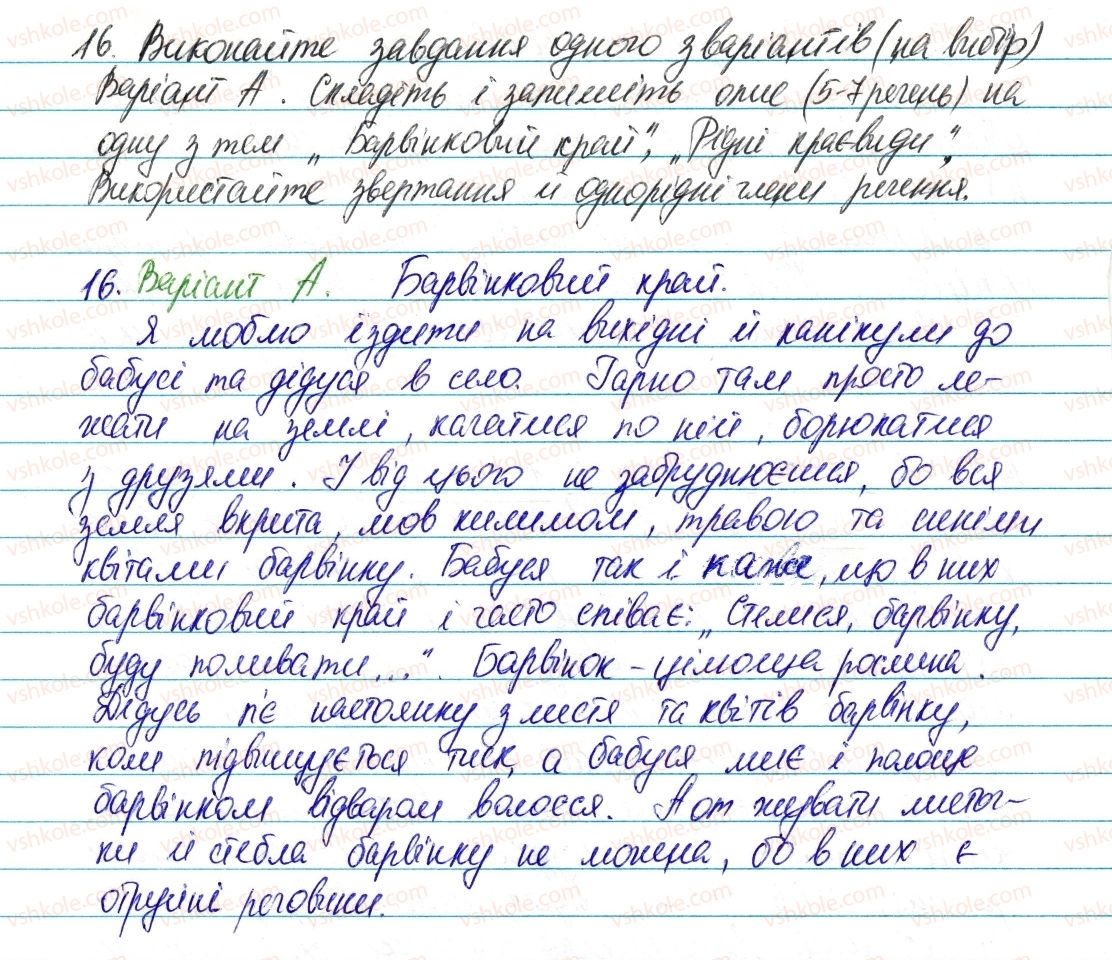 16. Виконайте завдання одного з варіантів (на вибір)
Варіант А. Складіть і запишіть опис (5-7 речень) на
одну з тем „Барвінковий край", „Рідні краєвиди".
Використайте звертання й однорідні члени речення.
16. Варіант А. Барвінковий край.
Я люблю їздити на вихідні й канікули до
бабусі та дідуся в село. Гарно там просто ле-
жати на землі, качатися по ній, борюкатися
з друзями. І від цього не забруднюєшся, бо вся
земля вкрита, мов килимом, травою та синіми
квітами барвінку. Бабуся так і каже, що в них
барвінковий край і часто співає: „Стелися, барвінку,
буду поливати...". Барвінок - цілюща рослина.
Дідусь п'є настоянку з листя та квітів барвінку,
коли підвищується тиск, а бабуся миє і полоще
барвінком відваром волосся. А от жувати листоч-
ки й стебла барвінку не можна, бо в них є
отруйні речовини.